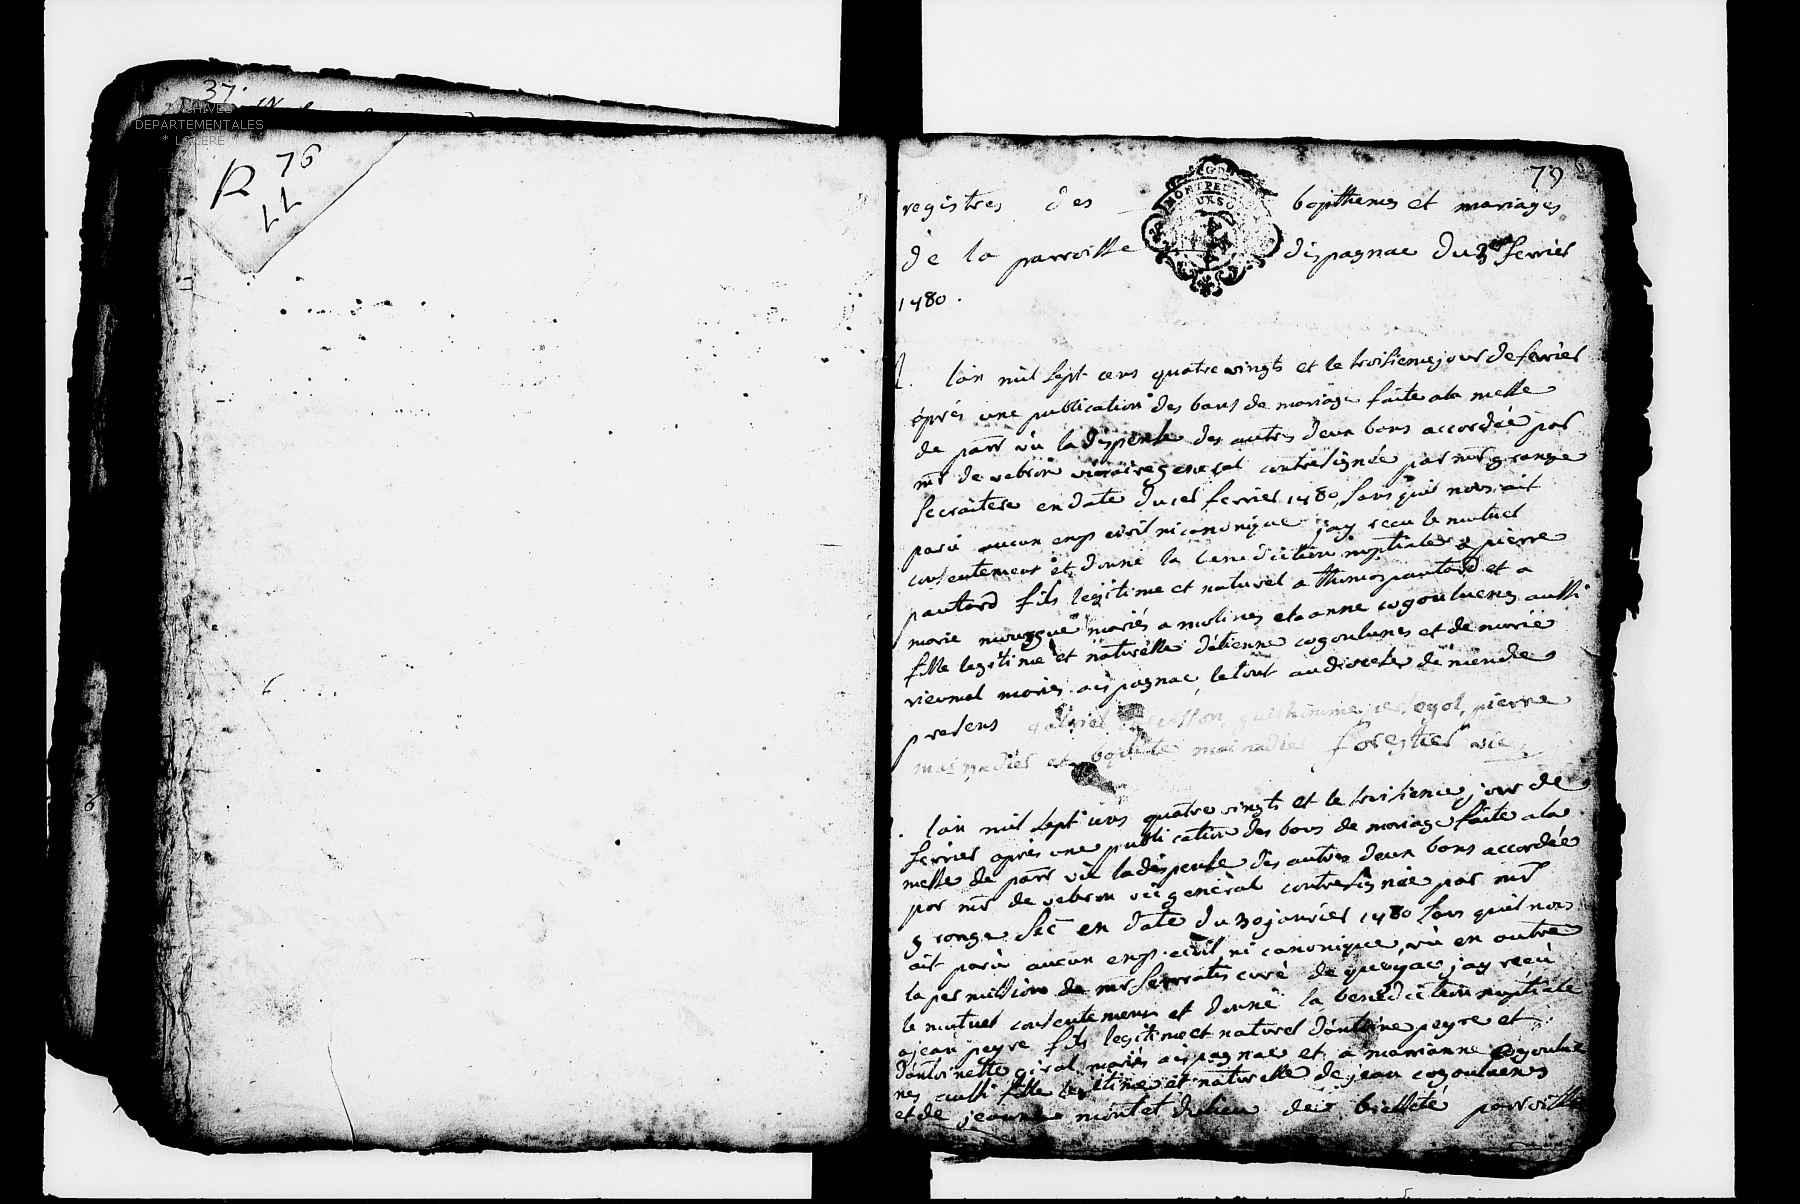 37.
ARCHIVES
DEPARTEMENTALES
* LOZERE *
R 76
11
79
registres des bapthemes et mariages
de la parroisse dispagnac du 3 fevrier
1780.
1. lan mil sept cens quatre vingts et le troisieme jour de fevrier
aprés une publication des bans de mariage faite a la messe
de parr vû la dispense des autres deux bans accordée par
mr de vebron vicaire general contresignée par mr grange
secraitere en date du 1er fevrier 1780, sans quil nous ait
parû aucun emp civil ni canonique jay recu le mutuel
consentement et donné la benediction nuptiale a pierre
pautard fils legitime et naturel a thomas pautard et a
marie mourgue mariés a molines et a anne cogoulunes aussi
fille legitime et naturelle détienne cogoulunes et de marie
vieumal mariés a ispagnac, le tout au dioceze de mende
presens gabriel guilhaume pierre
mainadier et baptiste mainadier forestier vic
. lan mil sept cens quatre vingts et le troisieme jour de
fevrier aprés une publication des bans de mariage faite a la
messe de parr vû la dispense des autres deux bans accordée
par mr de vebron vic general contresignée par mr
grange sec en date du 30 janvier 1780 sans quil nous
ait parû aucun emp. civil ni canonique, vû en outre
la permission de mr curé de quezac jay recu
le mutuel consentement et donné la benediction nuptiale
a jean peyre fils legitime et naturel dantoine peyre et
dantoinette giral mariés a ispagnac et a marianne cogoulu
nes aussi fille legitime et naturelle de jean cogoulunes
et de jeanne montet du lieu de parroisse